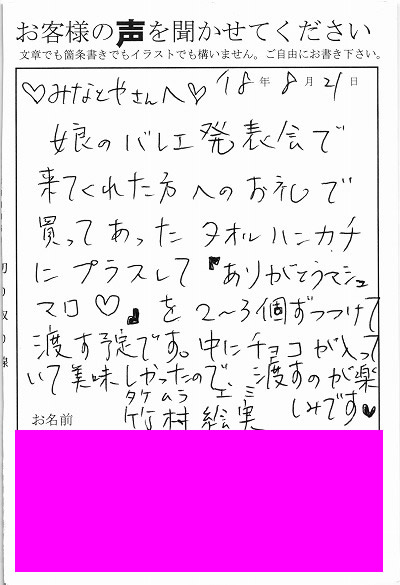 お客様の声を聞かせてください
文章でも箇条書きでもイラストでも構いません。ご自由にお書き下さい。
♡みなとやさんへ♡ 18年8月21日
娘のバレエ発表会で
来てくれた方へのお礼で
買ってあったタオルハンカチ
にプラスして『ありがとうマシュ
マロ♡』を2~3個ずつつけて
渡す予定です。中にチョコが入って
いて美味しかったので、渡すのが楽
しみです♥
お名前
タケムラ エミ
竹村絵実
切り取り線